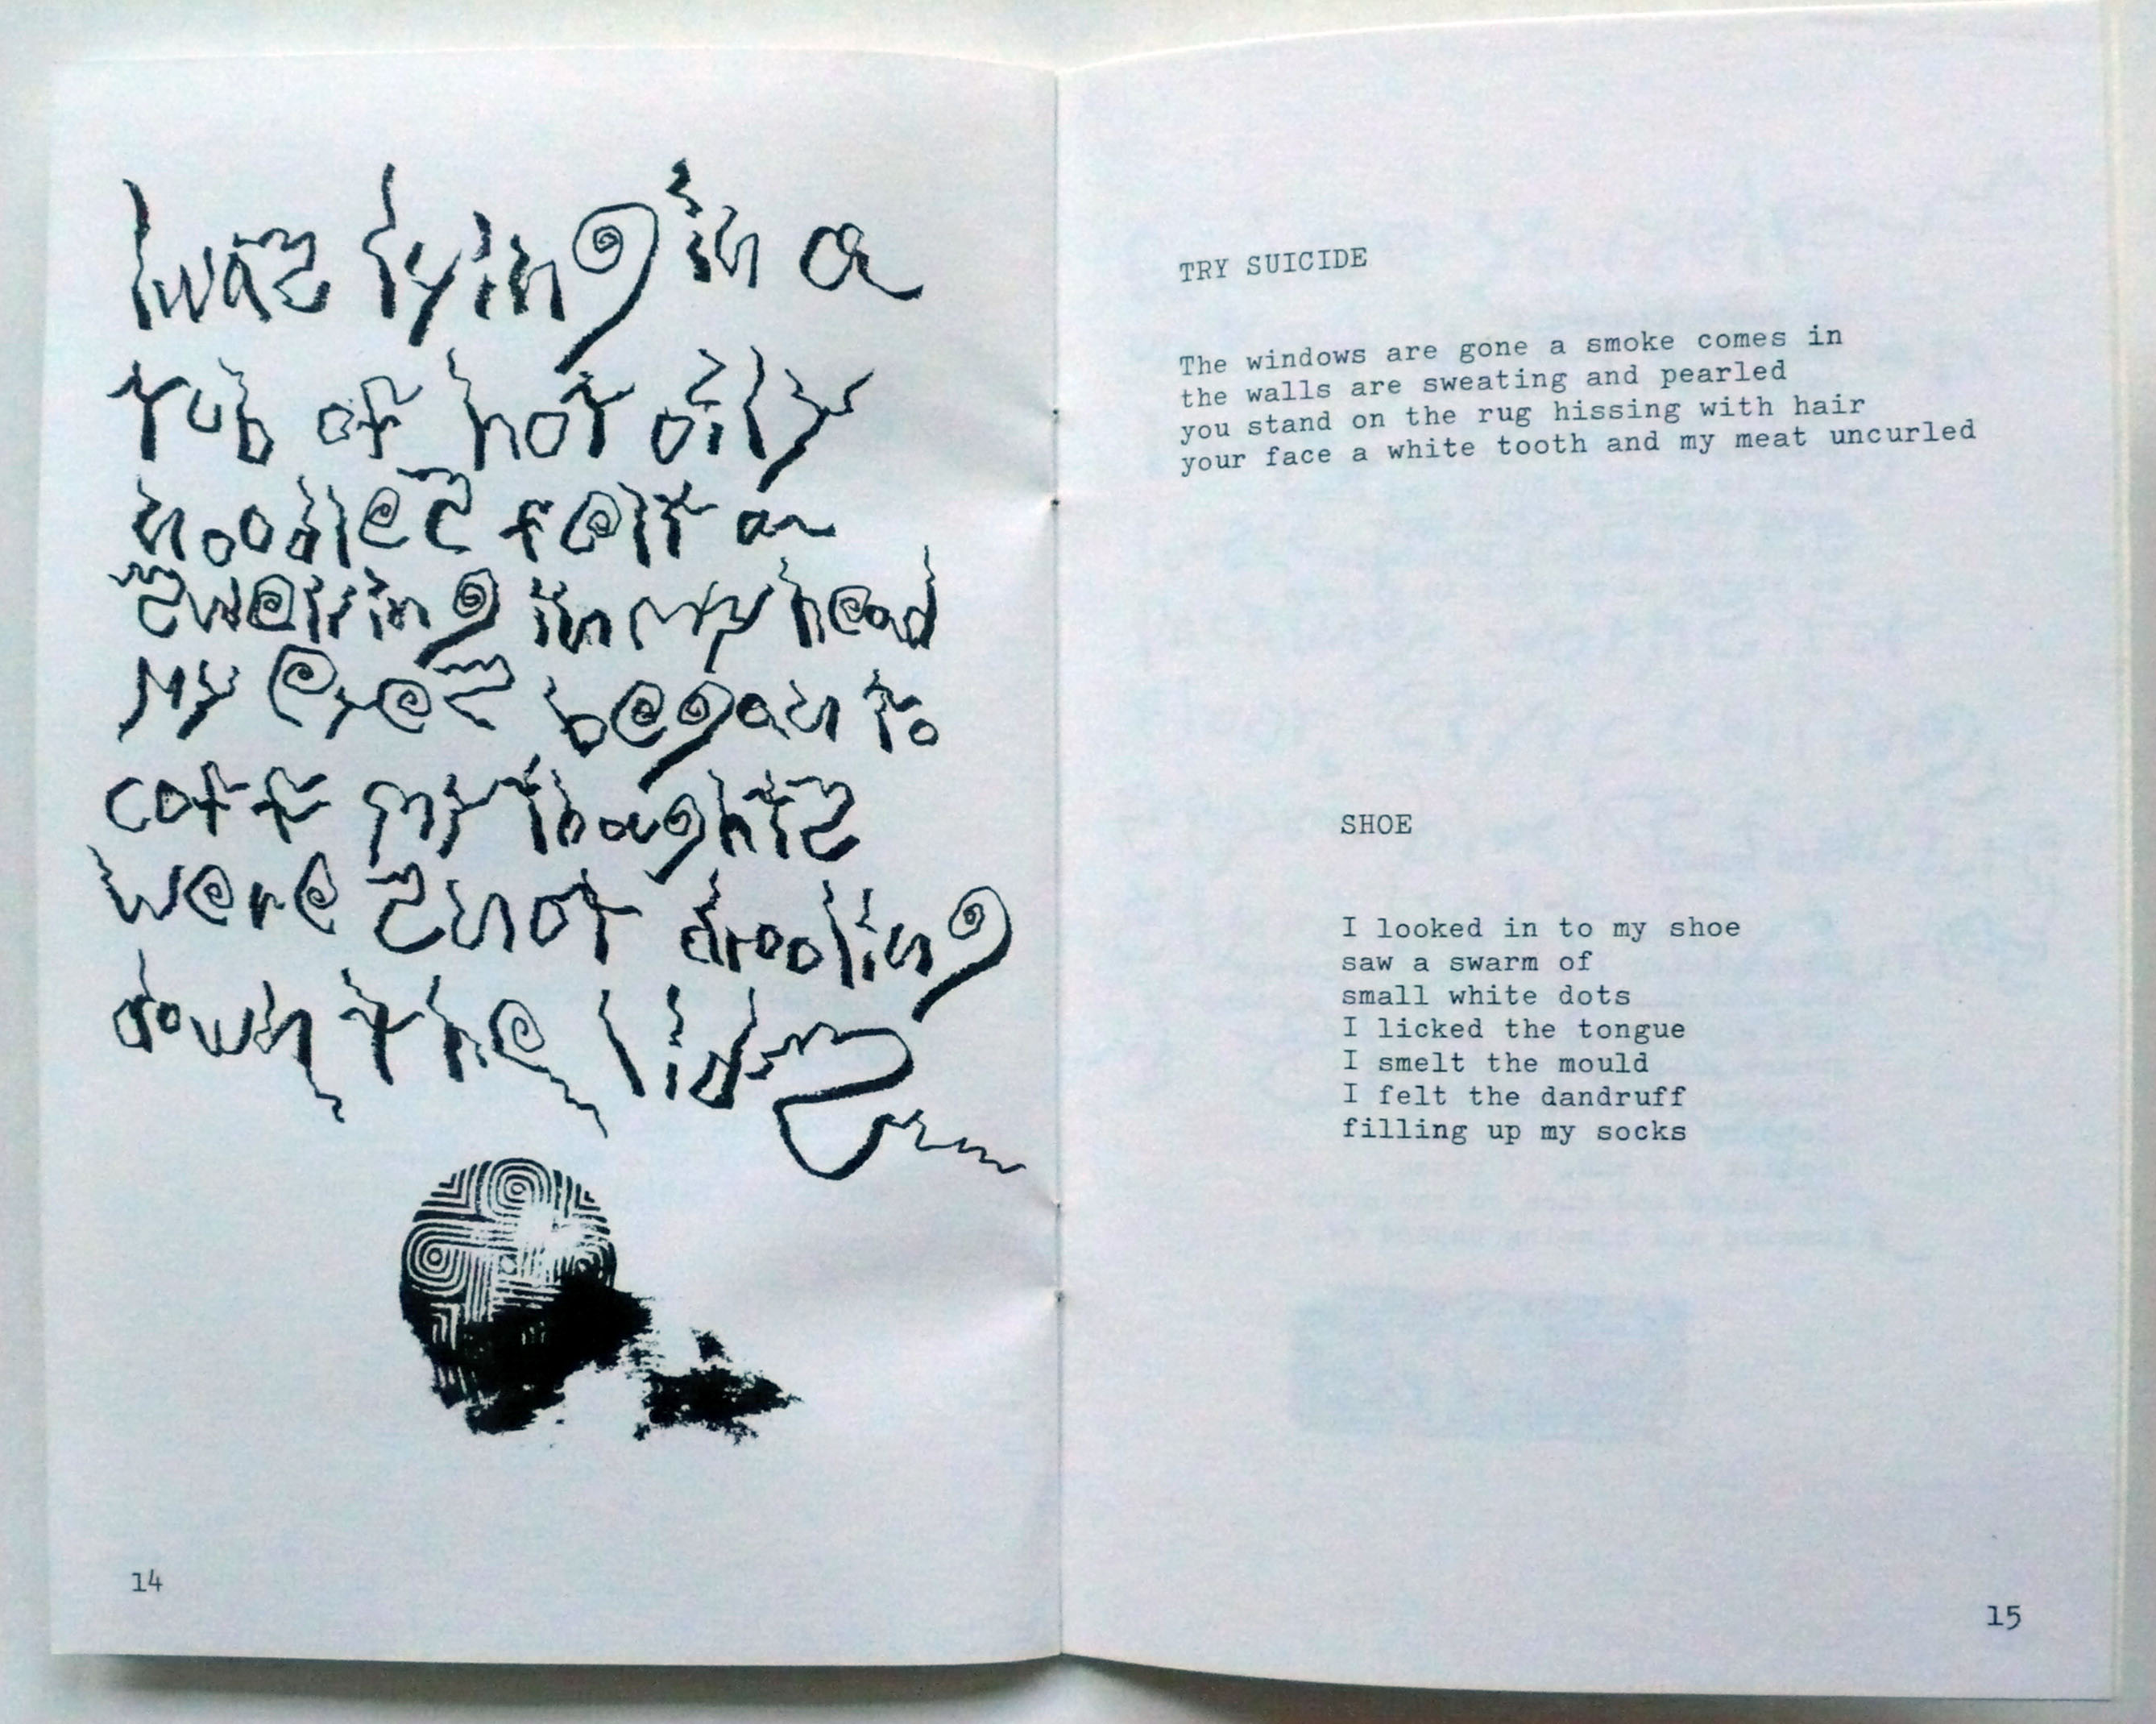 I was lying in a
tub of hot oily
noodles felt a
swelling in my head
my eyes began to
coff my thoughts
were snot drooling
down the lids
14
TRY SUICIDE
The windows are gone a smoke comes in
the walls are sweating and pearled
you stand on the rug hissing with hair
your face a white tooth and my meat uncurled
SHOE
I looked in to my shoe
saw a swarm of
small white dots
I licked the tongue
I smelt the mould
I felt the dandruff
filling up my socks
15